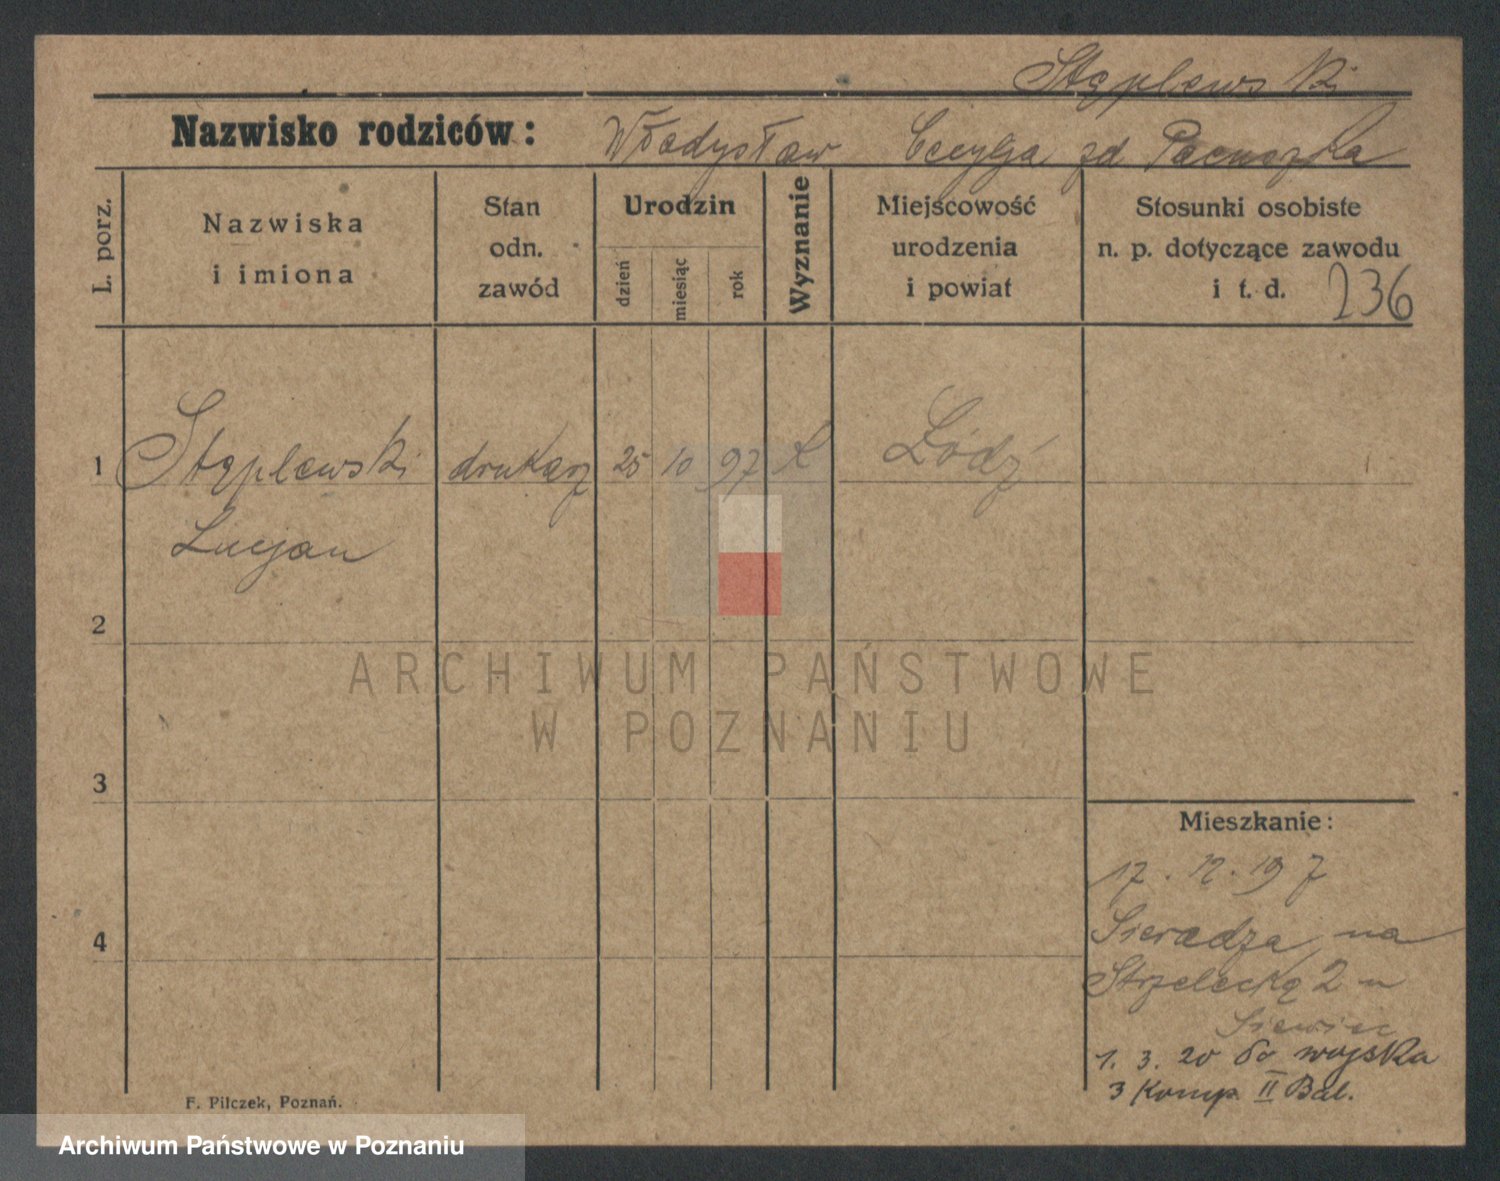 Stęplewski
Nazwisko rodziców: Władysław Cecylja zd
L. porz.
Nazwiska
i imiona
Stan
odn.
zawód
Urodzin
dzień
miesiąc
rok
Wyznanie
Miejscowość
urodzenia
i powiat
Stosunki osobiste
n. p. dotyczące zawodu
i t. d. 236
1 Stęplewski drukarz 25 10 97 K Łódź
Lucjan
2
3
4
Mieszkanie:
17. 12. 19 z
Sieradza na
Strzelecką 2 u
1. 3. 20 do wojska
3 Komp. II Bat.
F. Pilczek, Poznań.
ARCHIWUM PAŃSTWOWE
W POZNANIU
Archiwum Państwowe w Poznaniu